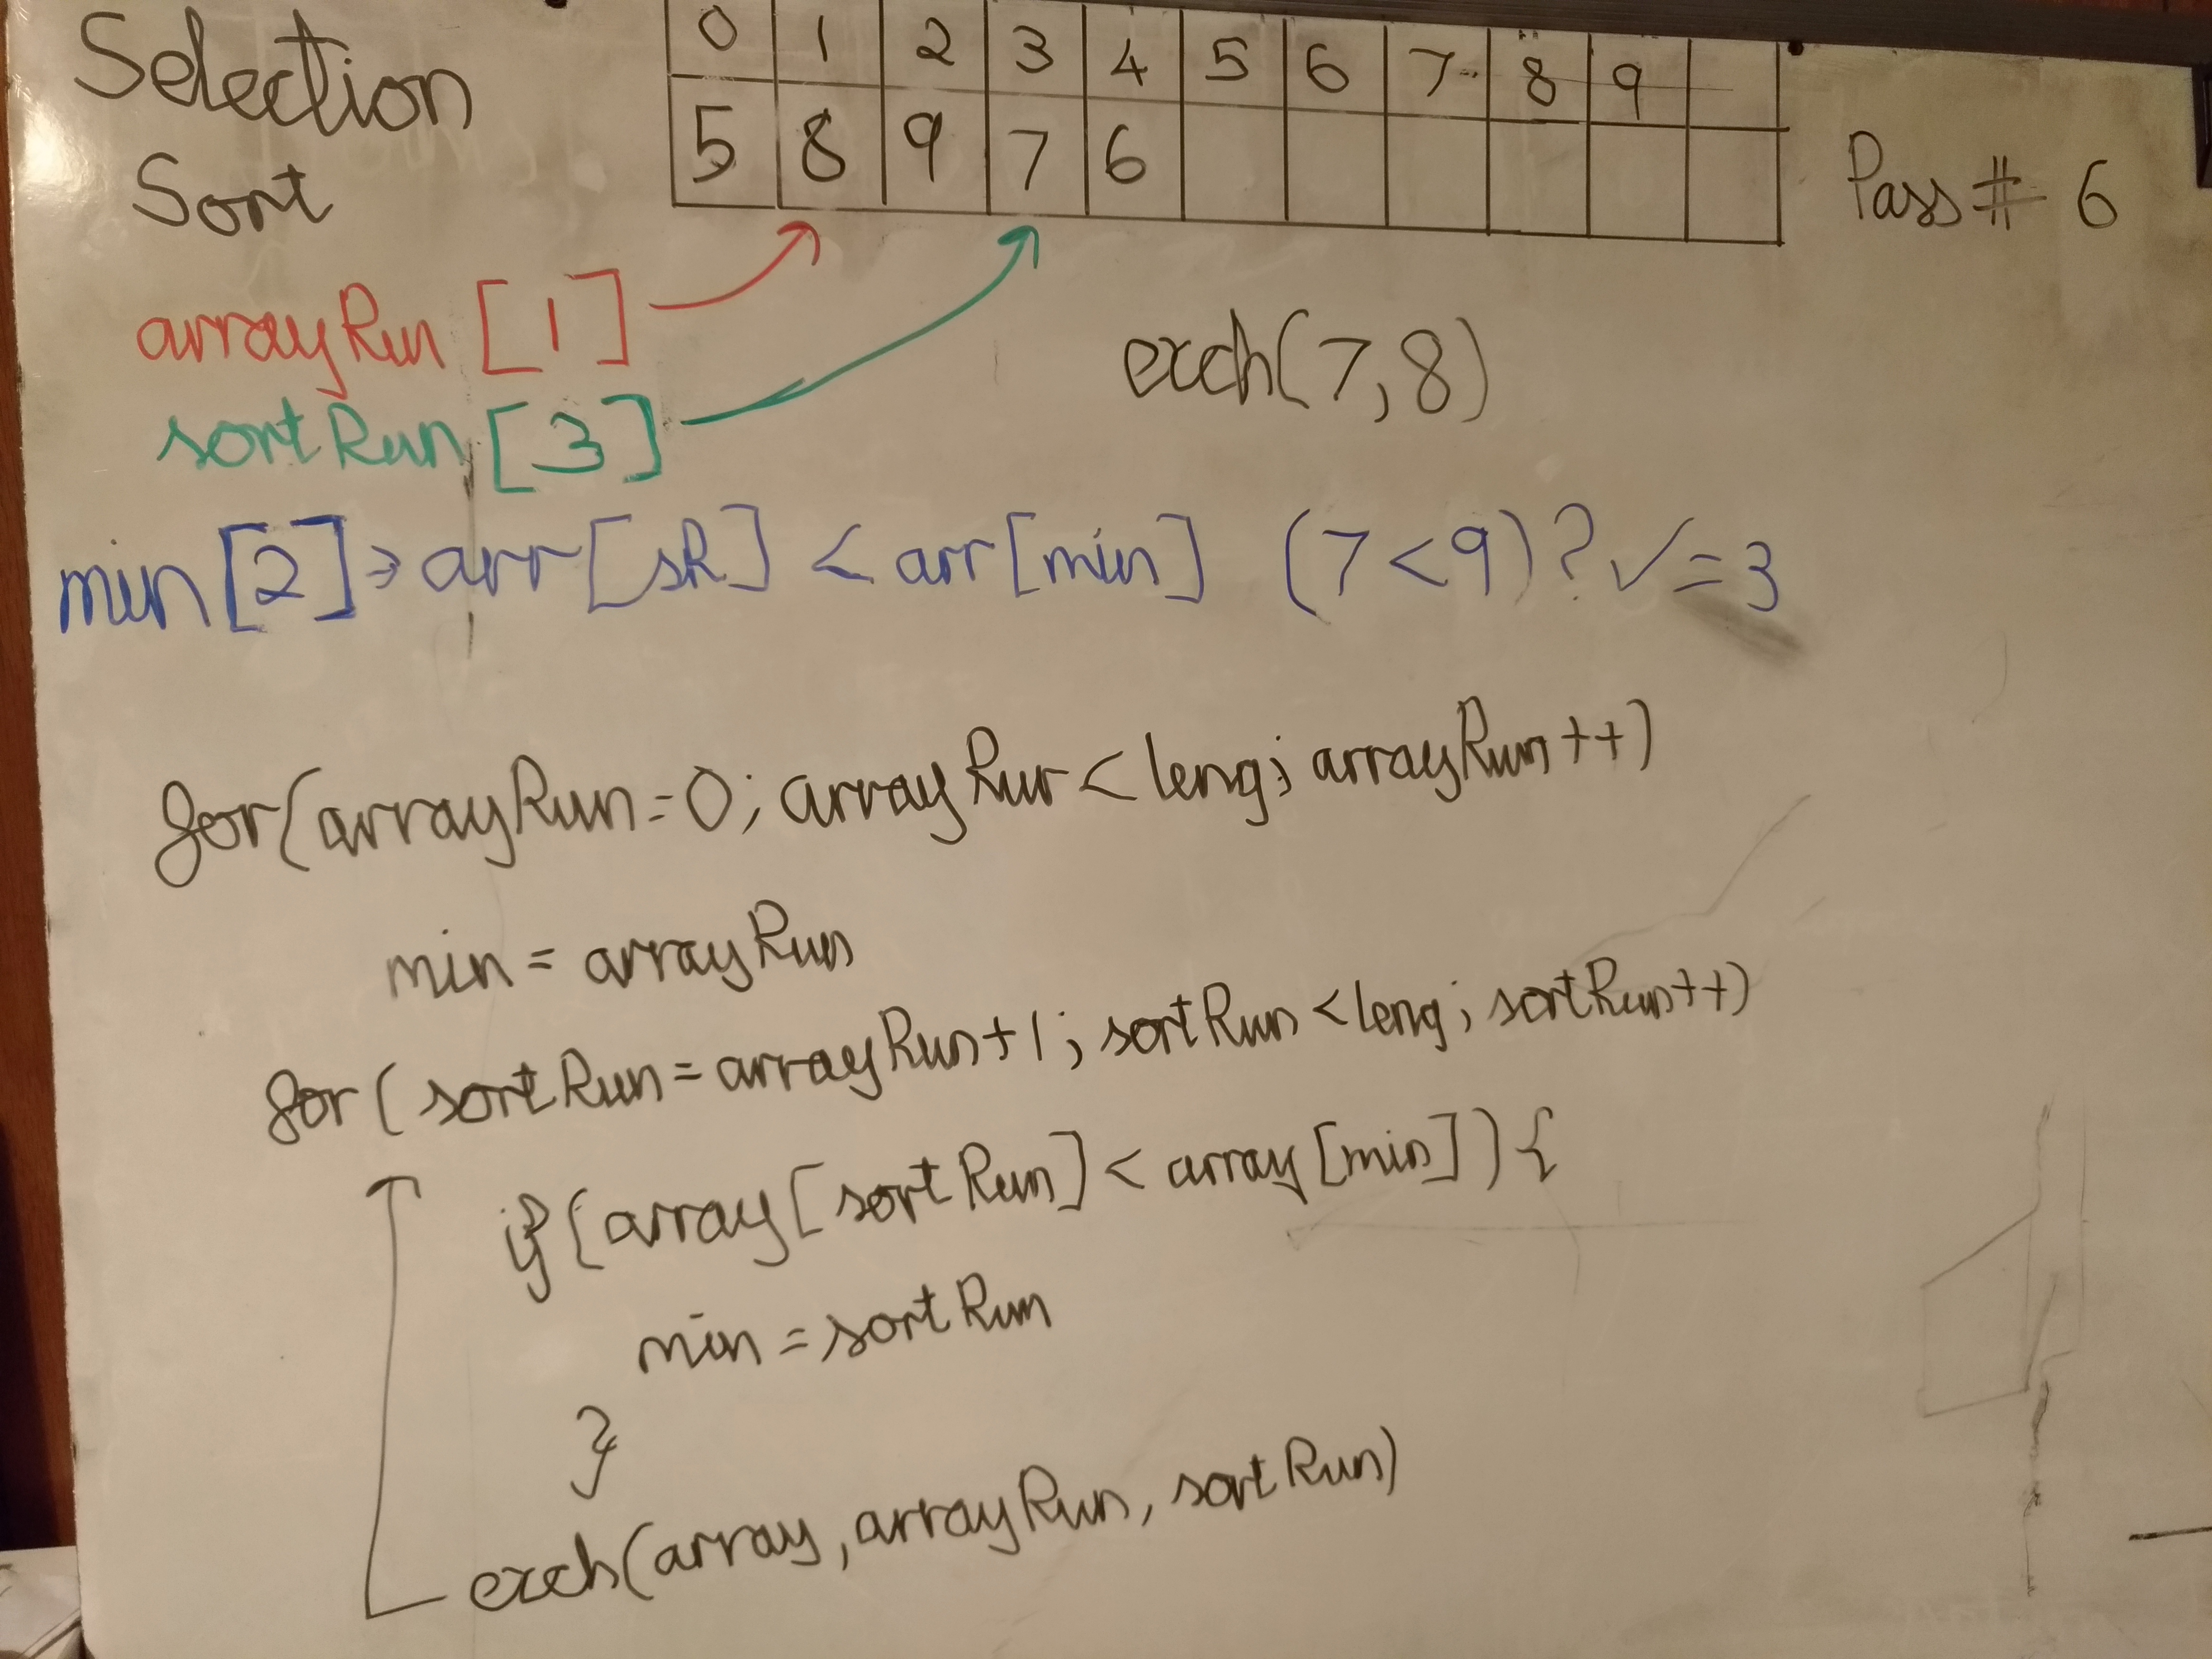 Selection
Sort
0 1 2 3 4 5 6 7 8 9
5 8 9 7 6
Pass # 6
arrayRun [1]
exch(7,8)
sortRun [3]
min[2] → arr[sR] < arr[min] (7<9)? ✓=3
for(arrayRun=0; arrayRun<leng; arrayRun++)
min = arrayRun
for(sortRun=arrayRun+1; sortRun<leng; sortRun++)
if(array[sortRun] < array[min]){
min = sortRun
}
exch(array, arrayRun, sortRun)